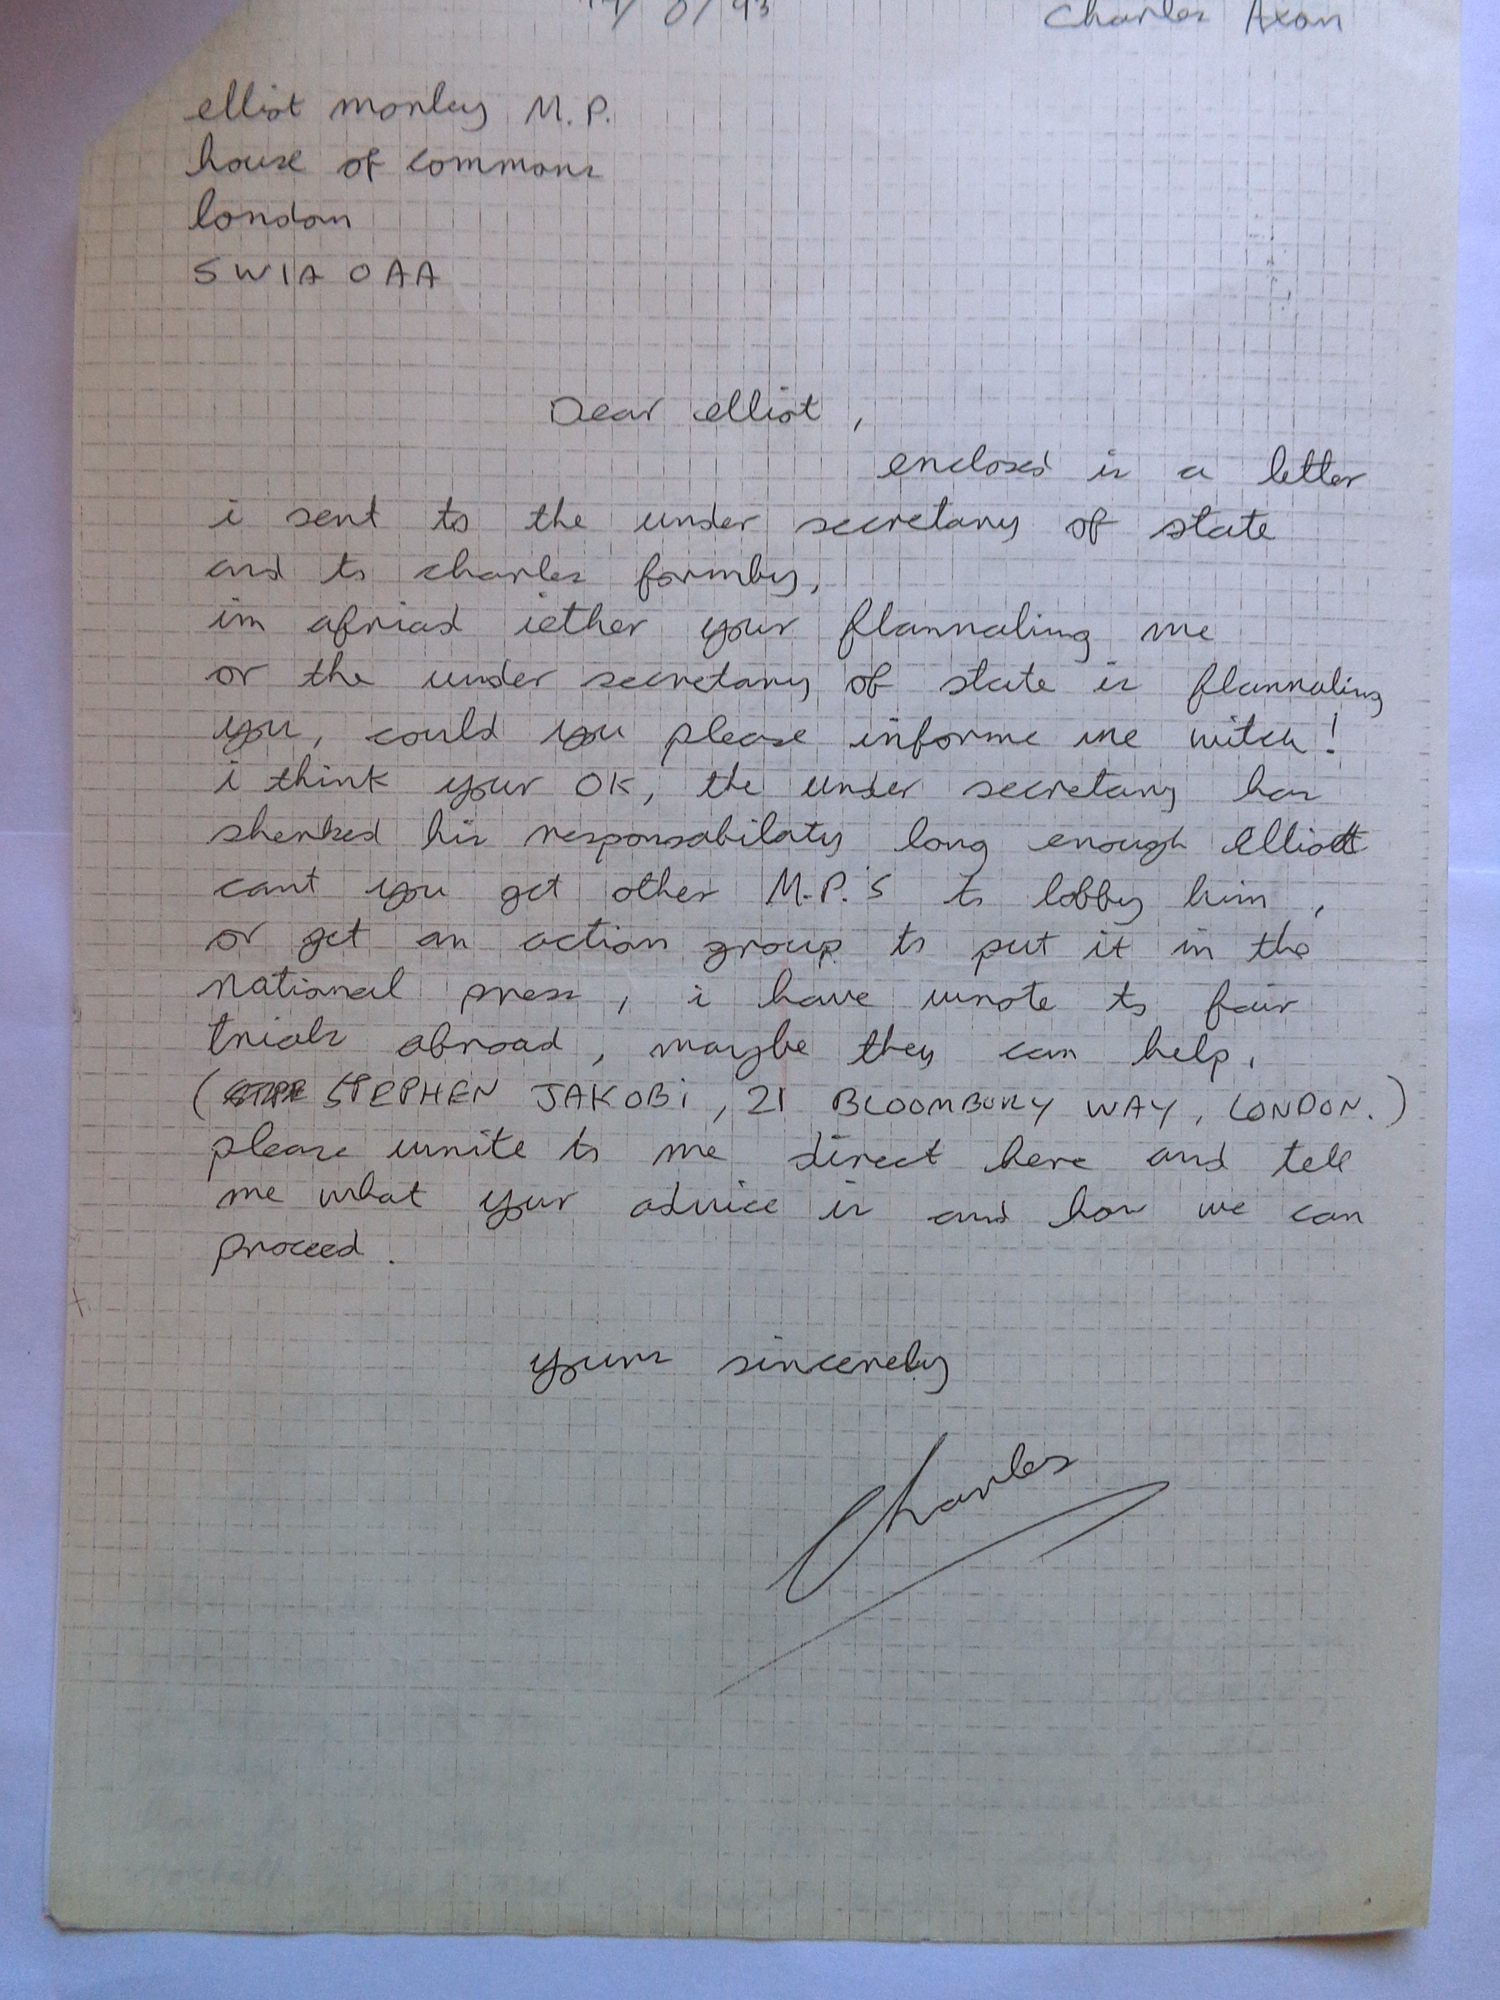 Charles Axon
elliot morley M.P.
house of commons
london
SW1A 0AA
Dear elliot,
enclosed is a letter
i sent to the under secretary of state
and to charles formby,
im afriad iether your flannaling me
or the under secretary of state is flannaling
you, could you please informe me witch!
i think your OK, the under secretary has
sherked his responsabilaty long enough Elliott
cant you get other M.P.'S to lobby him,
or get an action group to put it in the
national press, i have wrote to fair
trials abroad, maybe they can help.
(STEPHEN JAKOBi, 21 BLOOMBURY WAY, LONDON.)
please write to me direct here and tell
me what your advice is and how we can
proceed.
yours sincerely
Charles